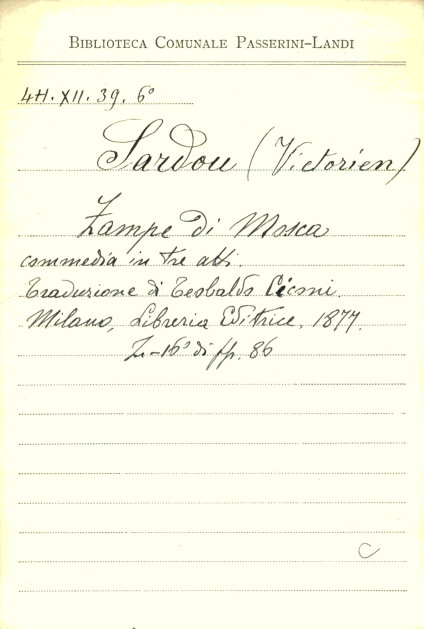 BIBLIOTECA COMUNALE PASSERINI–LANDI
4H. XII. 39. 6º
Sardou (Victorien)
Zampe di Mosca
commedia in tre atti.
Traduzione di Teobaldo Ciconi.
Milano, Libreria Editrice, 1877.
In-16º di pp. 86
C